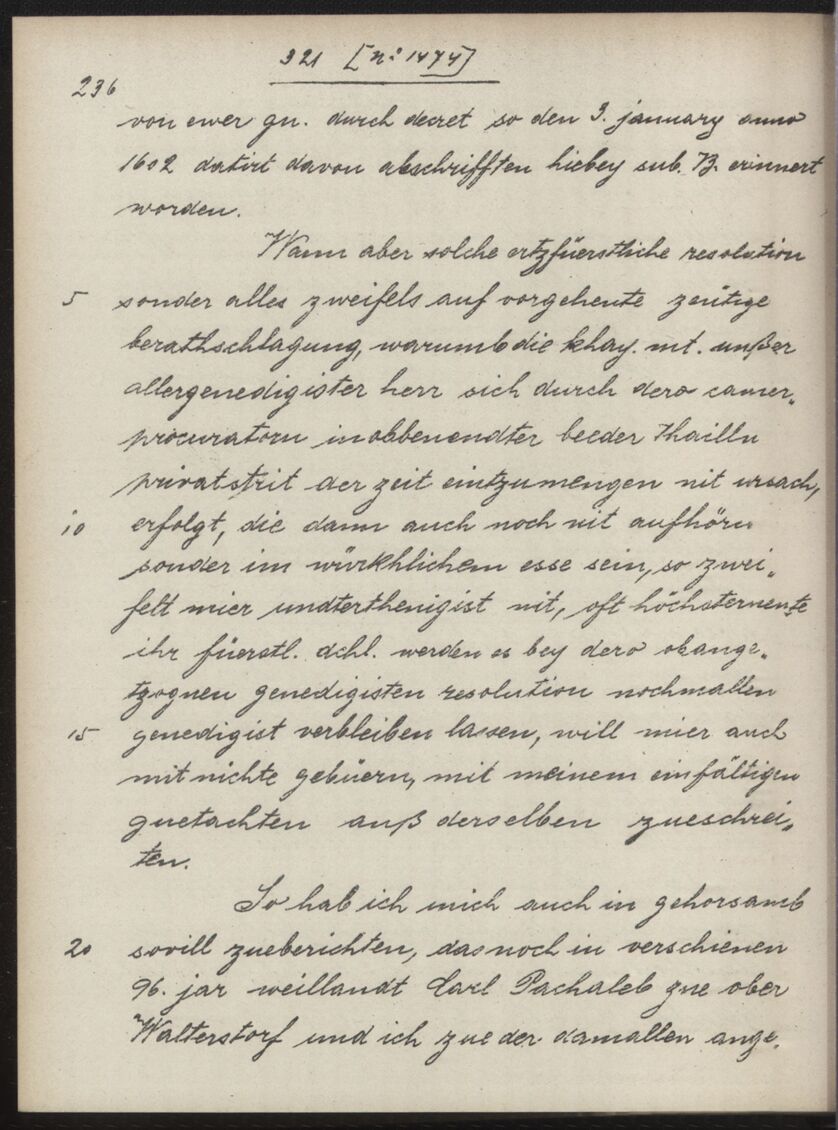 321 [nº 1474]
236
von ewer gn. durch decret so den 3. january anno
1602 datirt davon abschrifften hiebey sub. B. erinnert
worden.
Wann aber solche ertzfüerstliche resolution
5 sonder alles zweifels auf vorgehente zeütige
berathschlagung, warumb die khay. mt. unßer
allergenedigister herr sich durch dero camer„
procuratorn in obbenendter beeder thailln
privatstrit der zeit eintzumengen nit ursach,
10 erfolgt, die dann auch noch nit aufhörn
sonder im würkhlichem esse sein, so zwei„
felt mier undterthenigist nit, oft höchsternente
ihr füerstl. dchl. werden es bey dero obange„
tzognen genedigisten resolution nochmallen
15 genedigist verbleiben lassen, will mier auch
mit nichte gebüern, mit meinem einfältigen
guetachten auß derselben zueschrei„
ten.
So hab ich mich auch in gehorsamb
20 sovill zueberichten, das noch in verschienen
96. jar weillandt Carl Pachaleb zue ober
Walterstorf und ich zue der damallen ange„